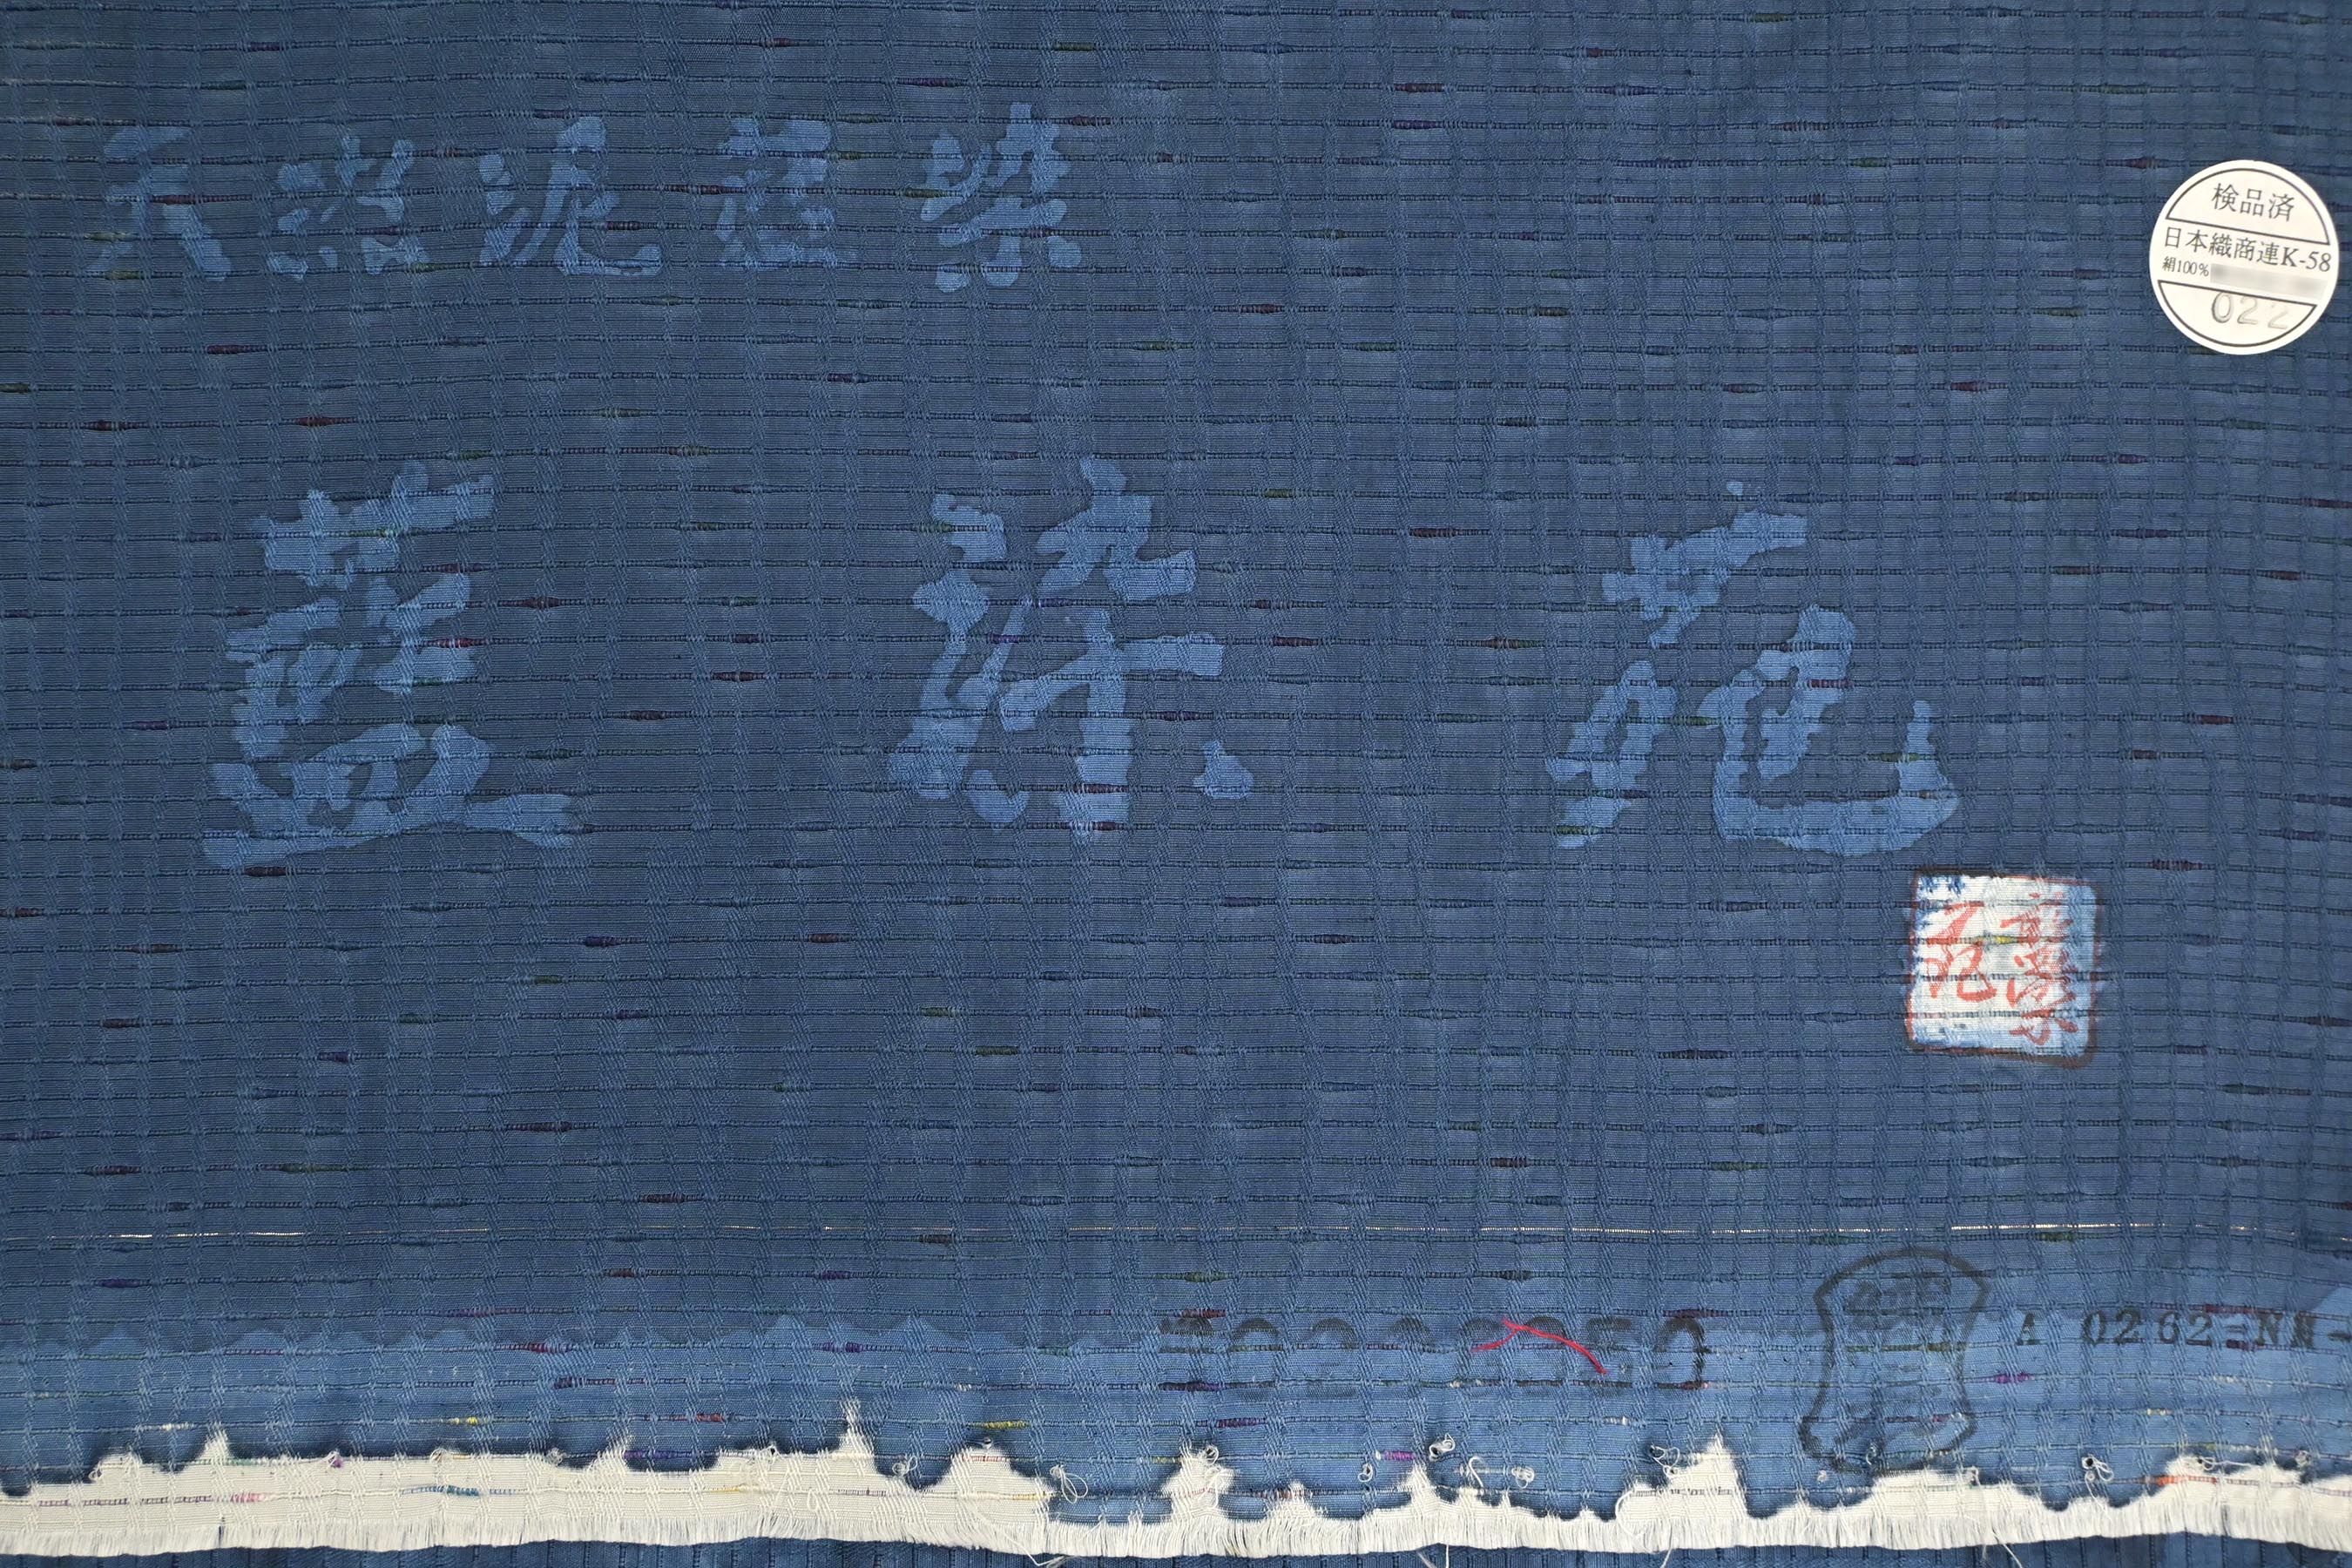 天然泥藍染
検品済
日本織商連K-58
絹100%
022
藍染苑
藍染苑
A 0262-NN-